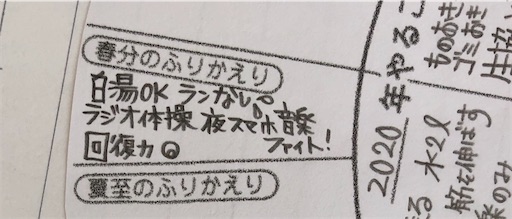 春分のふりかえり
白湯OK ランなし
ラジオ体操 夜スマホ音楽
回復力 ファイト!
夏至のふりかえり
2020年やるこ
ものおき
ゴミおき
生協
る 水2l
筋を伸ばす
のみ